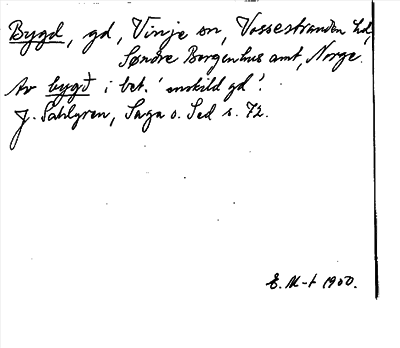 Bygd, gd, Vinje sn, Vossestranden hd,
Søndre Bergenhus amt, Norge.
Av bygð i bet. 'enskild gd'.
J. Sahlgren, Saga o. Sed s. 72.
E. M-t 1900.